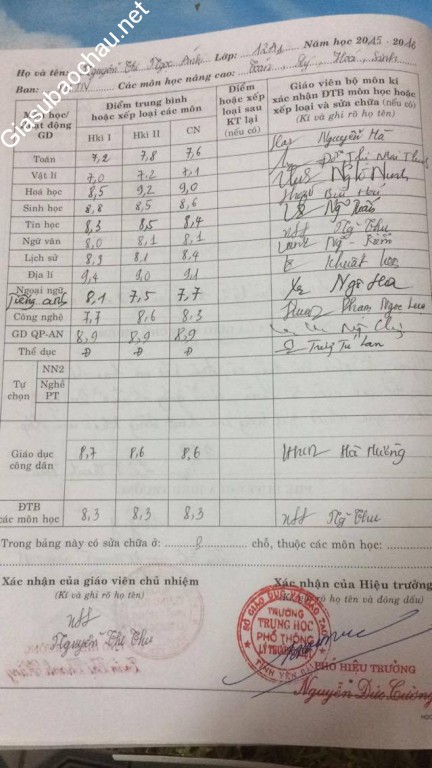 Giasubaochau.net
Họ và tên: Nguyễn Thị Ngọc Ánh Lớp: 12A1 Năm học 2015 - 2016
Ban: TN Các môn học nâng cao: Toán, Lý, Hoá, Sinh
Môn học/ Hoạt động GD Điểm trung bình hoặc xếp loại các môn Điểm hoặc xếp loại sau KT lại (nếu có) Giáo viên bộ môn kí xác nhận ĐTB môn học hoặc xếp loại và sửa chữa (nếu có)
(Kí và ghi rõ họ tên)
Hkì I Hkì II CN
Toán 7,2 7,8 7,6 Nguyễn Hà
Vật lí 7,0 7,2 7,1 Đỗ Thị
Hoá học 8,5 9,2 9,0 Ngô Ninh
Sinh học 8,8 8,5 8,6
Tin học 8,3 8,5 8,4 Ngô
Ngữ văn 8,0 8,1 8,1 Ng Thu
Lịch sử 8,9 8,1 8,4
Địa lí 9,4 9,0 9,1 Khuất
Ngoại ngữ Tiếng anh 8,1 7,5 7,7 Ngô Hoa
Công nghệ 7,7 8,6 8,3 Phạm Ngọc
GD QP-AN 8,9 8,9 8,9
Thể dục Đ Đ Đ Lan
Tự chọn
NN2
Nghề PT
Giáo dục công dân 8,7 8,6 8,6 Hà Hường
ĐTB các môn học 8,3 8,3 8,3 Ng Thu
Trong bảng này có sửa chữa ở: 0 chỗ, thuộc các môn học:
Xác nhận của giáo viên chủ nhiệm
(Kí và ghi rõ họ tên)
Nguyễn Thị Thu
Xác nhận của Hiệu trưởng
(Kí, ghi rõ họ tên và đóng dấu)
SỞ GIÁO DỤC VÀ ĐÀO TẠO
TRƯỜNG
TRUNG HỌC
PHỔ THÔNG
TỈNH YÊN BÁI
PHÓ HIỆU TRƯỞNG
Nguyễn Đức Cường